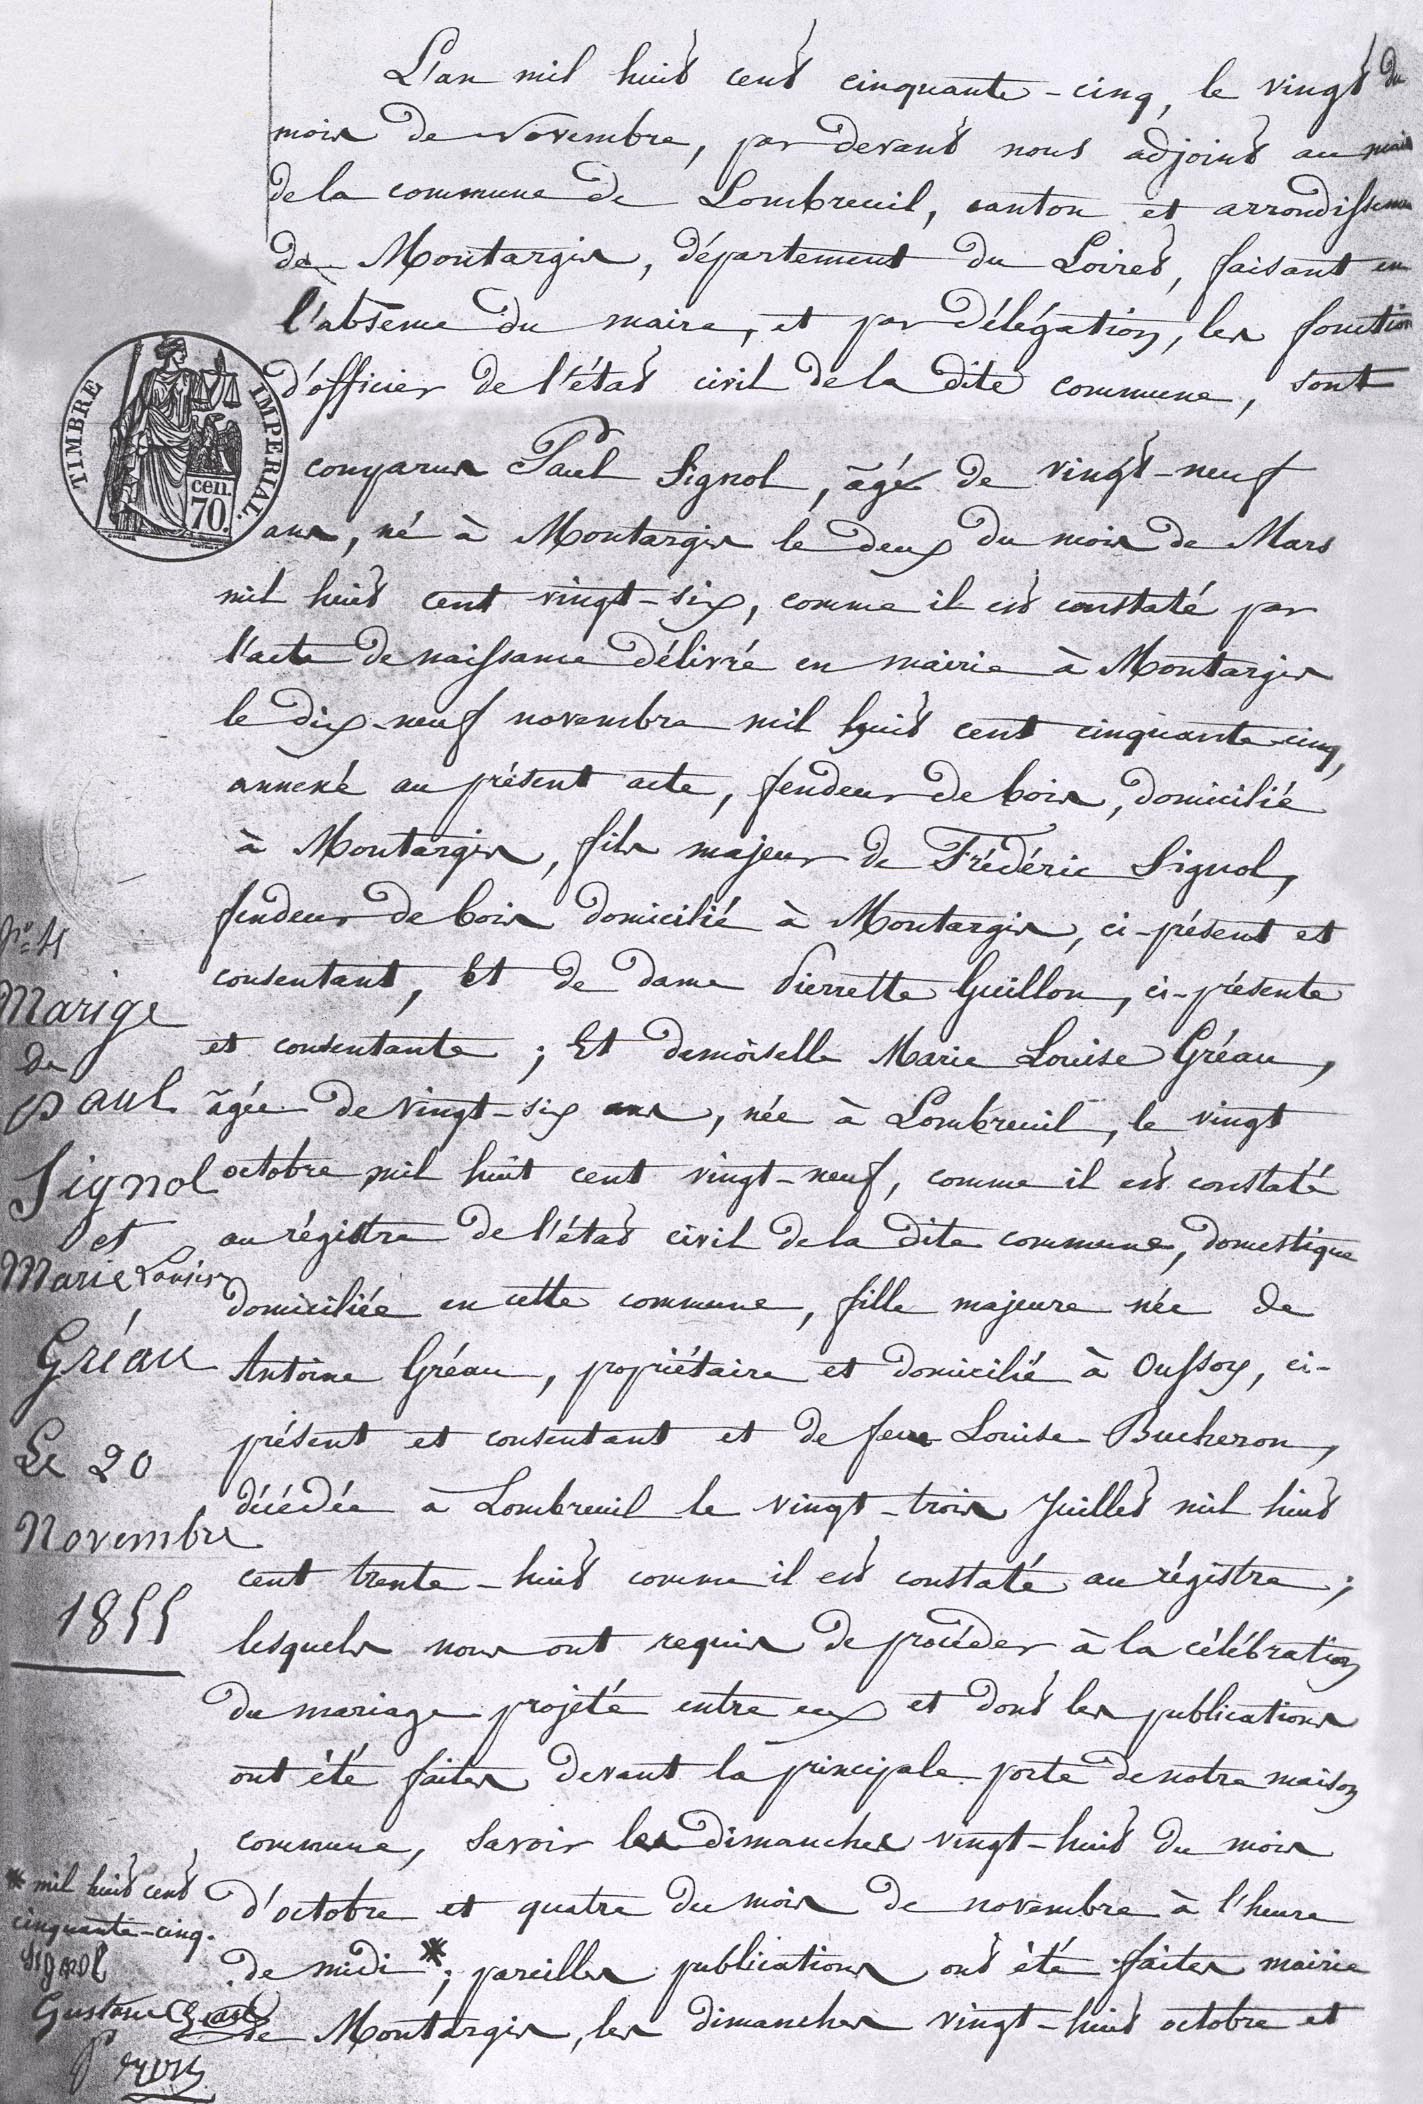 L'an mil huit cent cinquante-cinq, le vingt du
mois de Novembre, par devant nous adjoint au maire
de la commune de Lombreuil, canton et arrondissement
de Montargis, département du Loiret, faisant en
l'absence du maire, et par délégation, les fonctions
d'officier de l'état civil de la dite commune, sont
TIMBRE IMPERIAL.
cen.
70.
comparus Paul Signol, âgé de vingt-neuf
ans, né à Montargis le deux du mois de Mars
mil huit cent vingt-six, comme il est constaté par
l'acte de naissance délivré en mairie à Montargis
le dix-neuf novembre mil huit cent cinquante-cinq,
annexé au présent acte, fendeur de bois, domicilié
à Montargis, fils majeur de Frédéric Signol,
fendeur de bois domicilié à Montargis, ci-présent et
consentant, Et de dame Pierrette Guillon, ci-présente
et consentante ; Et demoiselle Marie Louise Gréau,
âgée de vingt-six ans, née à Lombreuil, le vingt
octobre mil huit cent vingt-neuf, comme il est constaté
au régistre de l'état civil de la dite commune, domestique
domiciliée en cette commune, fille majeure née de
Antoine Gréau, propriétaire et domicilié à Oussoy, ci-
présent et consentant et de feue Louise Bucheron,
décédée à Lombreuil le vingt-trois Juillet mil huit
cent trente-huit comme il est constaté au régistre ;
lesquels nous ont requis de procéder à la célébration
du mariage projeté entre eux et dont les publications
ont été faites devant la principale porte de notre maison
commune, savoir les dimanches vingt-huit du mois
d'octobre et quatre du mois de novembre à l'heure
de midi * ; pareilles publications ont été faites mairie
de Montargis, les dimanches vingt-huit octobre et
No 4
Marige
de
Paul
Signol
et
Marie Louise
Gréau
Le 20
Novembre
1855
* mil huit cent
cinquante-cinq.
Signol
Gustave